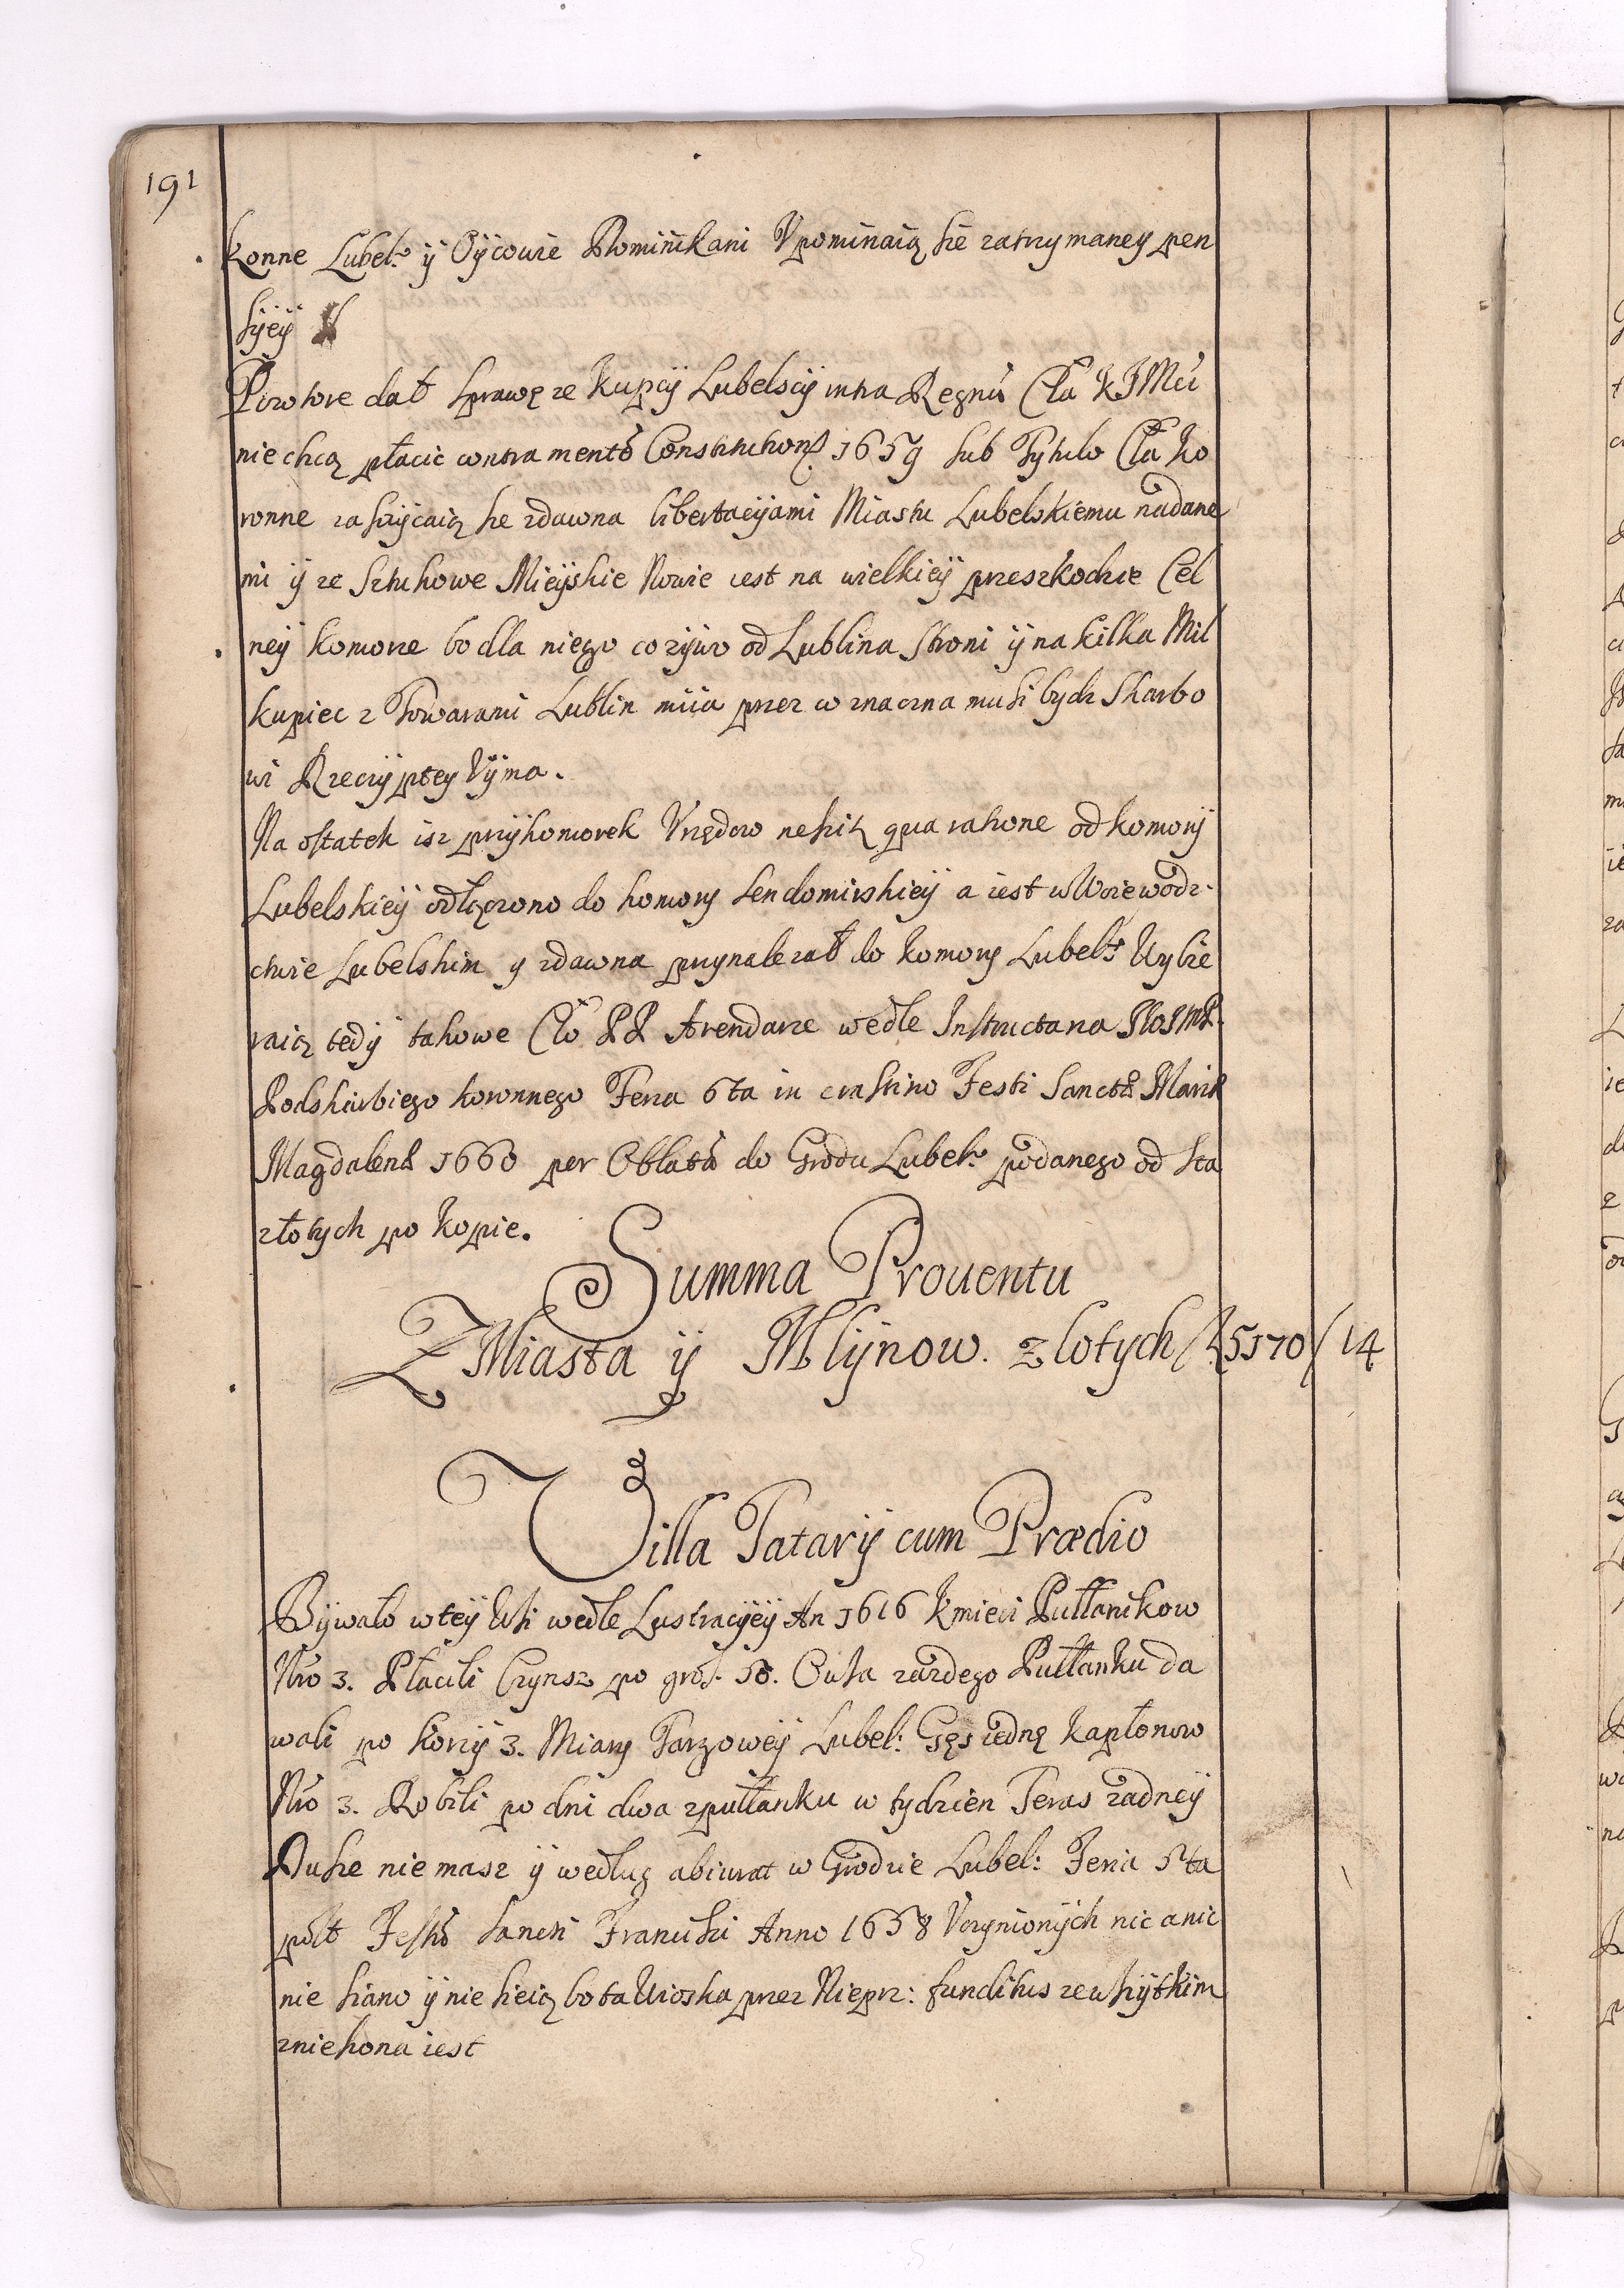 191
konne Lubel: ÿ Oÿcowie Dominikani Vpominaią sie zatrzymaney pen
syeÿ
Powtore dał sprawę ze Kupcÿ Lubelscÿ intra Regnũ Cła KJMci
niechcą płacic contra mentẽ Constitutionis 1659 sub Tytulo Cła Ko
ronne zaszÿcaią sie zdawna libertacÿami Miastu Lubelskiemu nadane
mi ÿ ze Sztukowe Mieÿskie Nowie iest na wielkieÿ przeszkodzie Cel
neÿ komorze bo dla niego co zÿwo od Lublina stroni ÿ na kilka Mil
kupiec z Towarami Lublin miia przez co znaczna musi bydz Skarbo
wi Rzeczÿptey Vÿma.
Na ostatek isz przÿkomorek Vrzędow nescitur qua ratione od komorÿ
Lubelskieÿ odłączono do komory Sendomirskieÿ a iest w Woiewodz-
ctwie Lubelskim y zdawna przynalezał do Komory Lubel: Wybie
raią tedÿ takowe Cło PP Arendarze wedle Instructarza JWJMP.
Podskarbiego koronnego Feria 6ta in crastino Festi Sanctæ Mariæ
Magdalenæ 1660 per Oblatã do Grodu Lubel: podanego od sta
złotych po kopie.
Summa Prouentu
Z Miasta ÿ Mlÿnow. zlotych / 5570 / 14
Villa Tatarÿ cum Prædio
Bÿwało w teÿ Wsi wedle Lustracÿeÿ An 1616 Kmieci Pułłanikow
Nro 3. Płacili Czynsz po gros. 50. Owsa zazdego Pułłanku da
wali po korcÿ 3. Miary Targoweÿ Lubel: Gęs iednę Kapłonow
Nro 3. Robili po dni dwa zpułłanku w tydzien Teras zadneÿ
Dusze nie masz ÿ według abiurat w Grodzie Lubel: Feria 5ta
post Festũ Sancti Francisci Anno 1658 Vczynionÿch nic anic
nie siano ÿ nie sieią bo ta Wioska przez Nieprz: funditus ze wszÿtkim
zniesiona iest